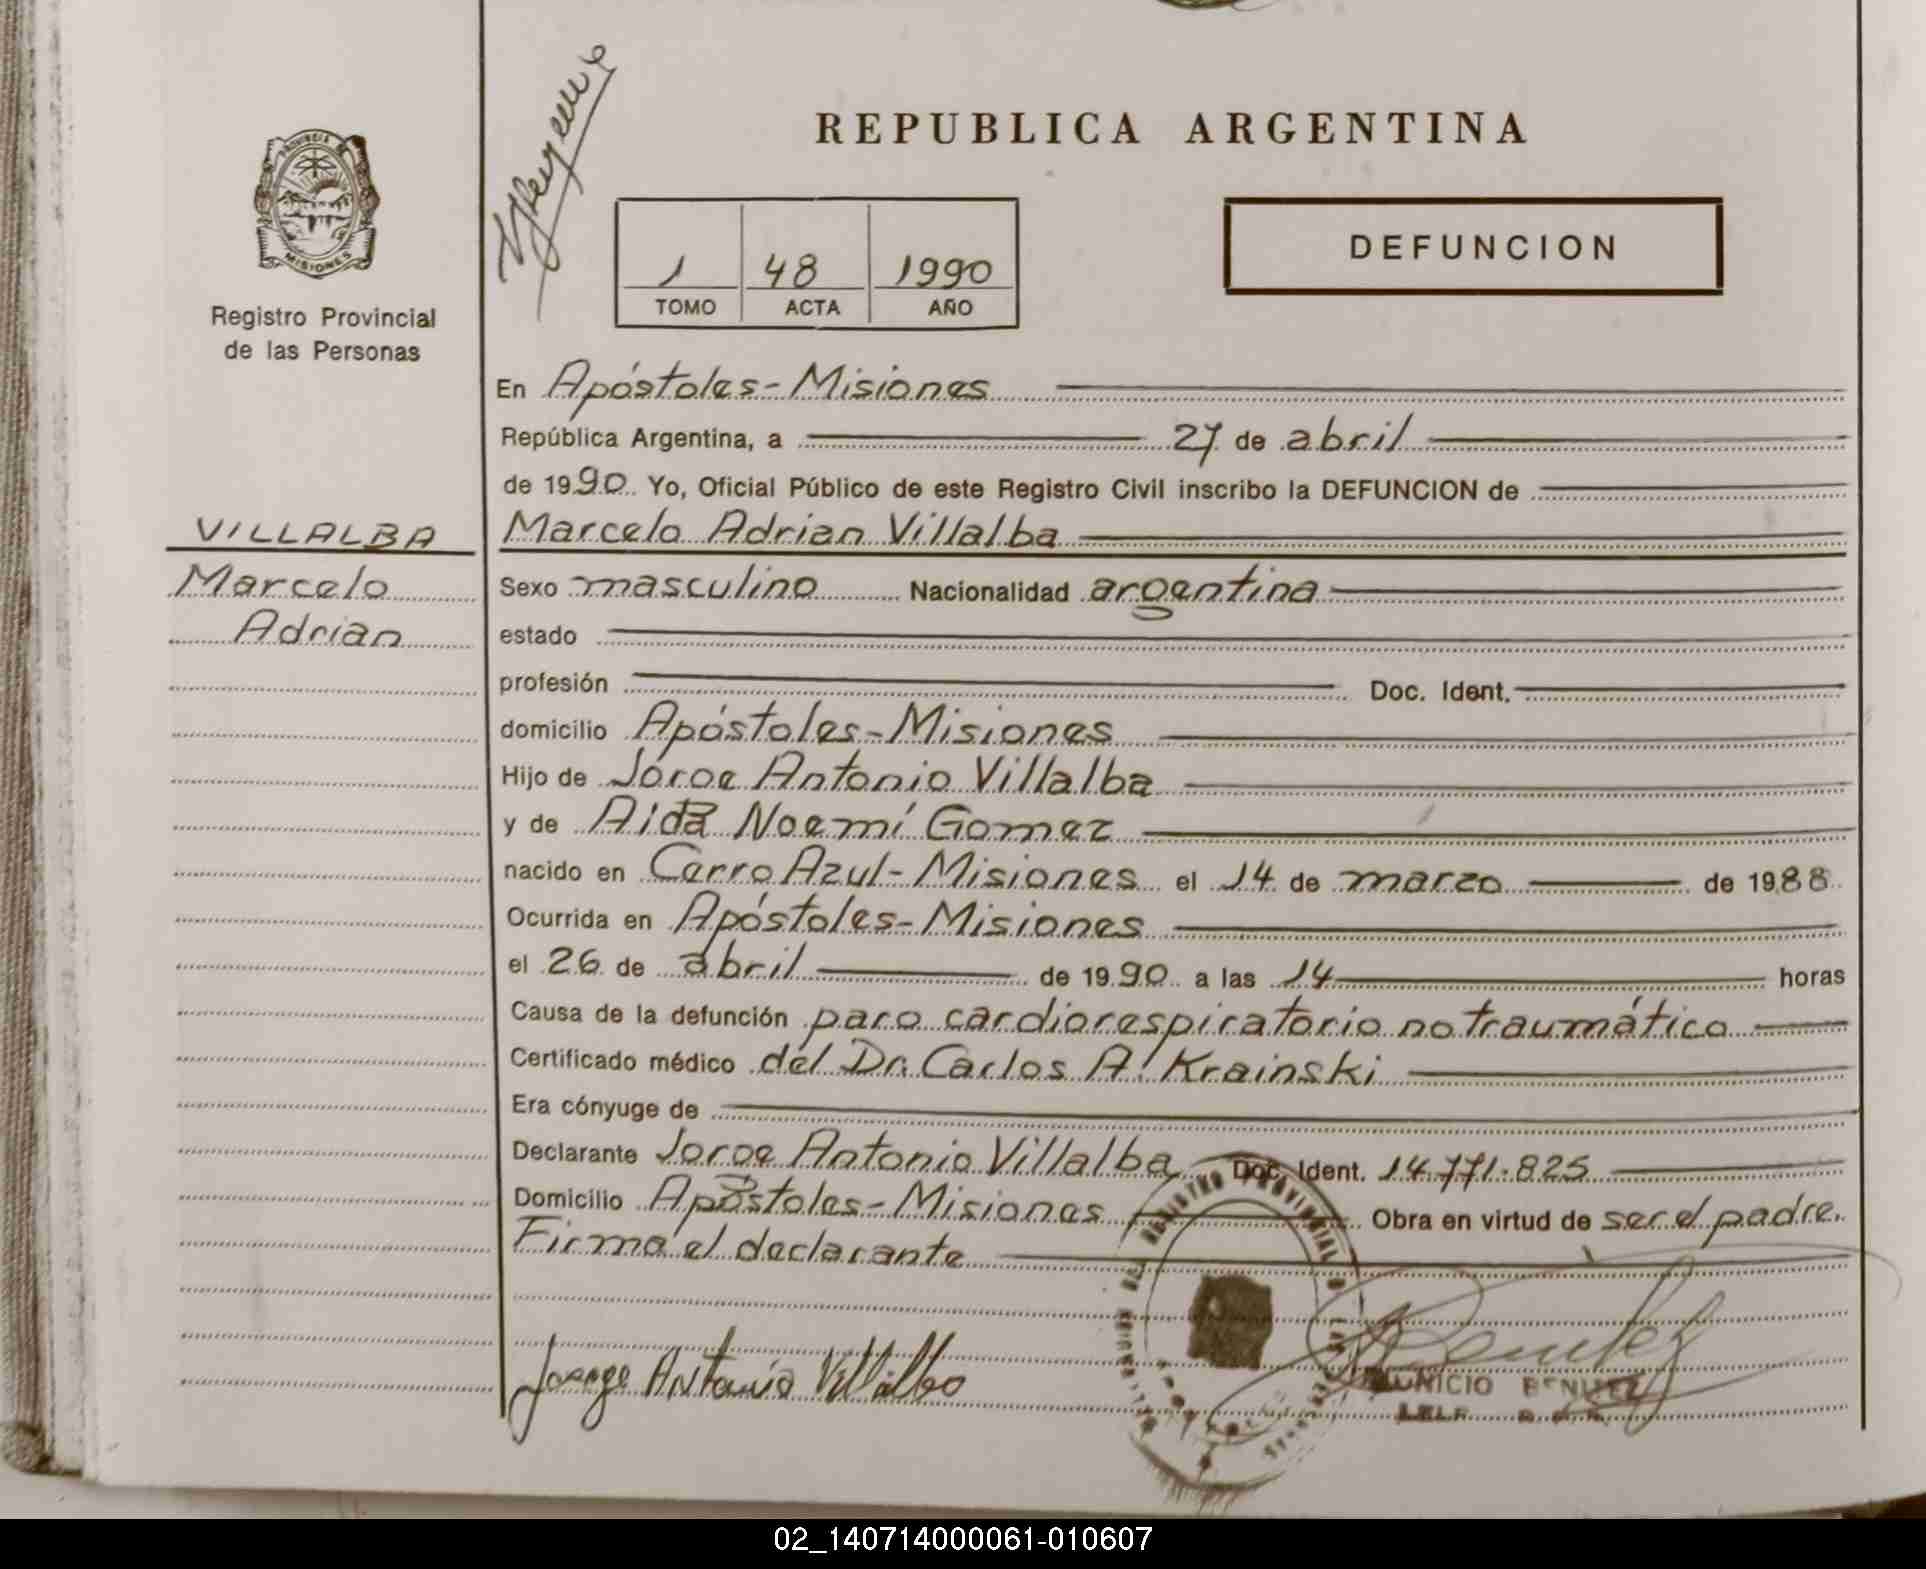 REPUBLICA ARGENTINA
PROVINCIA DE
MISIONES
Registro Provincial
de las Personas
1 48 1990
TOMO ACTA AÑO
DEFUNCION
En Apóstoles-Misiones
República Argentina, a 27 de abril
de 1990 Yo, Oficial Público de este Registro Civil inscribo la DEFUNCION de
VILLALBA
Marcelo
Adrian
Marcelo Adrian Villalba
Sexo masculino Nacionalidad argentina
estado
profesión Doc. Ident.
domicilio Apóstoles-Misiones
Hijo de Jorge Antonio Villalba
y de Aida Noemí Gomez
nacido en Cerro Azul-Misiones el 14 de marzo de 1988
Ocurrida en Apóstoles-Misiones
el 26 de abril de 1990 a las 14 horas
Causa de la defunción paro cardiorespiratorio no traumático
Certificado médico del Dr. Carlos A. Krainski
Era cónyuge de
Declarante Jorge Antonio Villalba Doc. Ident. 14.771.825
Domicilio Apóstoles-Misiones Obra en virtud de ser el padre.
Firma el declarante
Jorge Antonio Villalba
REGISTRO PROVINCIAL
BENITEZ
02_140714000061-010607